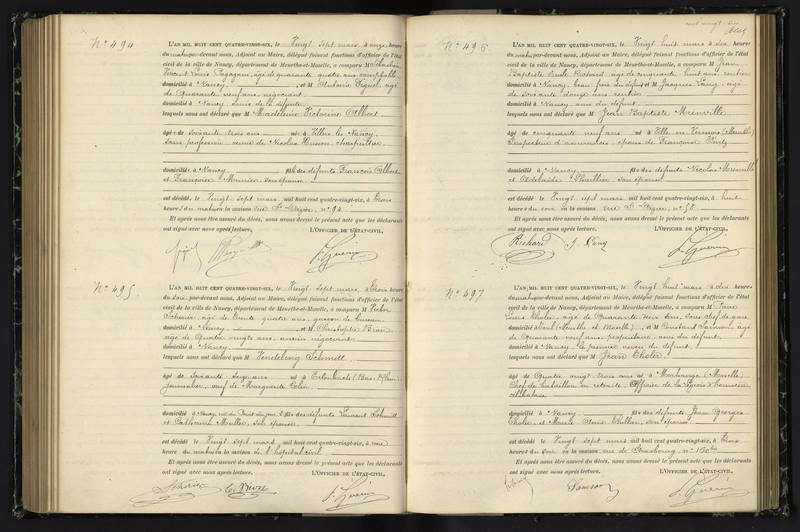 N° 494
L'AN MIL HUIT CENT QUATRE-VINGT-SIX, le Vingt sept mars à onze heures
du matin, par-devant nous, Adjoint au Maire, délégué faisant fonctions d'officier de l'état
civil de la ville de Nancy, département de Meurthe-et-Moselle, a comparu M Sébastien
Vincent Louis, âgé de quarante quatre ans, comptable
domicilié à Nancy, et M Antoine, âgé
de Quarante neuf ans, négociant
domicilié à Nancy, amis de la défunte
lesquels nous ont déclaré que M Madeleine Victorine Albert
âgé de soixante trois ans né à Villers les Nancy,
sans profession, veuve de Nicolas Husson, charpentier
domicilié à Nancy fille des défunts François Albert
et Françoise Meunier, son épouse
est décédé le Vingt sept mars, mil huit cent quatre-vingt-six, à trois
heures du matin en la maison rue St Dizier, n° 94
Et après nous être assuré du décès, nous avons dressé le présent acte que les déclarants
ont signé avec nous après lecture. L'OFFICIER DE L'ÉTAT-CIVIL,
N° 495
L'AN MIL HUIT CENT QUATRE-VINGT-SIX, le Vingt sept mars à trois heures
du soir, par-devant nous, Adjoint au Maire, délégué faisant fonctions d'officier de l'état
civil de la ville de Nancy, département de Meurthe-et-Moselle, a comparu M Victor
âgé de trente quatre ans, garçon de bureau
domicilié à Nancy, et M Christophe
âgé de Quatre vingts ans, ancien négociant
domicilié à Nancy
lesquels nous ont déclaré que M Vendeling Schmitt
âgé de soixante seize ans né à (Bas-Rhin)
journalier, veuf de Marguerite Colin
domicilié à Nancy, fils des défunts Laurent Schmitt
et Catherine Muller, son épouse
est décédé le Vingt sept mars, mil huit cent quatre-vingt-six, à onze
heures du matin en la maison de l'hôpital civil
Et après nous être assuré du décès, nous avons dressé le présent acte que les déclarants
ont signé avec nous après lecture. L'OFFICIER DE L'ÉTAT-CIVIL,
N° 496
L'AN MIL HUIT CENT QUATRE-VINGT-SIX, le Vingt huit mars à dix heures
du matin, par-devant nous, Adjoint au Maire, délégué faisant fonctions d'officier de l'état
civil de la ville de Nancy, département de Meurthe-et-Moselle, a comparu M Jean
Baptiste Emile Richard, âgé de cinquante huit ans, rentier
domicilié à Nancy, beau frère du défunt et Jacques Lang, âgé
de soixante douze ans, rentier
domicilié à Nancy ami du défunt
lesquels nous ont déclaré que M Jean Baptiste Mienville
âgé de cinquante neuf ans né à Ville en Vermois (Meurthe)
Inspecteur d'assurances, époux de Françoise
domicilié à Nancy fils des défunts Nicolas Mienville
et Adélaïde son épouse
est décédé le Vingt sept mars, mil huit cent quatre-vingt-six, à huit
heures du soir en la maison rue St Dizier, n° 58
Et après nous être assuré du décès, nous avons dressé le présent acte que les déclarants
ont signé avec nous après lecture. L'OFFICIER DE L'ÉTAT-CIVIL,
Richard J Lang
N° 497
L'AN MIL HUIT CENT QUATRE-VINGT-SIX, le Vingt huit mars à dix heures
du matin, par-devant nous, Adjoint au Maire, délégué faisant fonctions d'officier de l'état
civil de la ville de Nancy, département de Meurthe-et-Moselle, a comparu M
Louis, âgé de Quarante deux ans, Sous chef de gare
domicilié à (Meurthe et Moselle), et M Constant Samson, âgé
de Quarante neuf ans, propriétaire, ami du défunt
domicilié à Nancy, le premier neveu du défunt
lesquels nous ont déclaré que M Jean
âgé de Quatre vingt trois ans né à Morhange (Moselle)
Chef de bataillon en retraite, Officier de la Légion d'honneur
célibataire
domicilié à Nancy fils des défunts Jean Georges
et Marie son épouse
est décédé le Vingt sept mars, mil huit cent quatre-vingt-six, à
heures du soir en la maison rue de Strasbourg, n°
Et après nous être assuré du décès, nous avons dressé le présent acte que les déclarants
ont signé avec nous après lecture. L'OFFICIER DE L'ÉTAT-CIVIL,
Samson